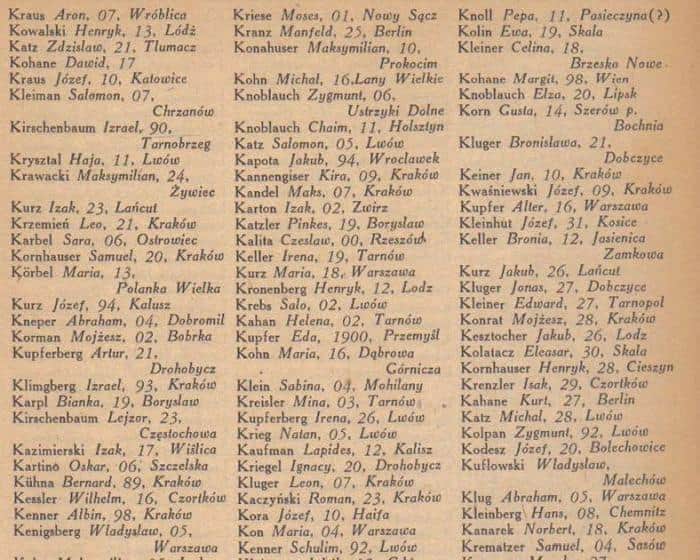 Kraus Aron, 07, Wróblica
Kowalski Henryk, 13, Łódź
Katz Zdzislaw, 21, Tlumacz
Kohane Dawid, 17
Kraus Józef, 10, Katowice
Kleiman Salomon, 07,
Chrzanów
Kirschenbaum Izrael, 90,
Tarnobrzeg
Krysztal Haja, 11, Lwów
Krawacki Maksymilian, 24,
Żywiec
Kurz Izak, 23, Lańcut
Krzemień Leo, 21, Kraków
Karbel Sara, 06, Ostrowiec
Kornhauser Samuel, 20, Kraków
Körbel Maria, 13,
Polanka Wielka
Kurz Józef, 94, Kalusz
Kneper Abraham, 04, Dobromil
Korman Mojżesz, 02, Bobrka
Kupferberg Artur, 21,
Drohobycz
Klimgberg Izrael, 93, Kraków
Karpl Bianka, 19, Borysław
Kirschenbaum Lejzor, 23,
Częstochowa
Kazimierski Izak, 17, Wiślica
Kartino Oskar, 06, Szczelska
Kühna Bernard, 89, Kraków
Kessler Wilhelm, 16, Czortków
Kenner Albin, 98, Kraków
Kenigsberg Władysław, 05,
Warszawa
Kriese Moses, 01, Nowy Sącz
Kranz Manfeld, 25, Berlin
Konahuser Maksymilian, 10,
Prokocim
Kohn Michal, 16, Lany Wielkie
Knoblauch Zygmunt, 06,
Ustrzyki Dolne
Knoblauch Chaim, 11, Holsztyn
Katz Salomon, 05, Lwów
Kapota Jakub, 94, Wroclawek
Kannengiser Kira, 09, Kraków
Kandel Maks, 07, Kraków
Karton Izak, 02, Zwirz
Katzler Pinkes, 19, Borysław
Kalita Czeslaw, 00, Rzeszów
Keller Irena, 19, Tarnów
Kurz Maria, 18, Warszawa
Kronenberg Henryk, 12, Lodz
Krebs Salo, 02, Lwów
Kahan Helena, 02, Tarnów
Kupfer Eda, 1900, Przemyśl
Kohn Maria, 16, Dąbrowa
Górnicza
Klein Sabina, 04, Mohilany
Kreisler Mina, 03, Tarnów
Kupferberg Irena, 26, Lwów
Krieg Natan, 05, Lwów
Kaufman Lapides, 12, Kalisz
Kriegel Ignacy, 20, Drohobycz
Kluger Leon, 07, Kraków
Kaczyński Roman, 23, Kraków
Kora Józef, 10, Haifa
Kon Maria, 04, Warszawa
Kenner Schulim, 92, Lwów
Knoll Pepa, 11, Pasieczyna(?)
Kolin Ewa, 19, Skala
Kleiner Celina, 18,
Brzesko Nowe
Kohane Margit, 98, Wien
Knoblauch Elza, 20, Lipsk
Korn Gusta, 14, Szerów p.
Bochnia
Kluger Bronislawa, 21,
Dobczyce
Keiner Jan, 10, Kraków
Kwaśniewski Józef, 09, Kraków
Kupfer Alter, 16, Warszawa
Kleinhut Józef, 31, Kosice
Keller Bronia, 12, Jasienica
Zamkowa
Kurz Jakub, 26, Lańcut
Kluger Jonas, 27, Dobczyce
Kleiner Edward, 27, Tarnopol
Konrat Mojżesz, 28, Kraków
Kesztocher Jakub, 26, Lodz
Kolatacz Eleasar, 30, Skala
Kornhauser Henryk, 28, Cieszyn
Krenzler Isak, 29, Czortków
Kahane Kurt, 27, Berlin
Katz Michal, 28, Lwów
Kolpan Zygmunt, 92, Lwów
Kodesz Józef, 20, Bolechowice
Kuflowski Władysław,
Malechów
Klug Abraham, 05, Warszawa
Kleinberg Hans, 08, Chemnitz
Kanarek Norbert, 18, Kraków
Krematzer Samuel, 04, Sasów